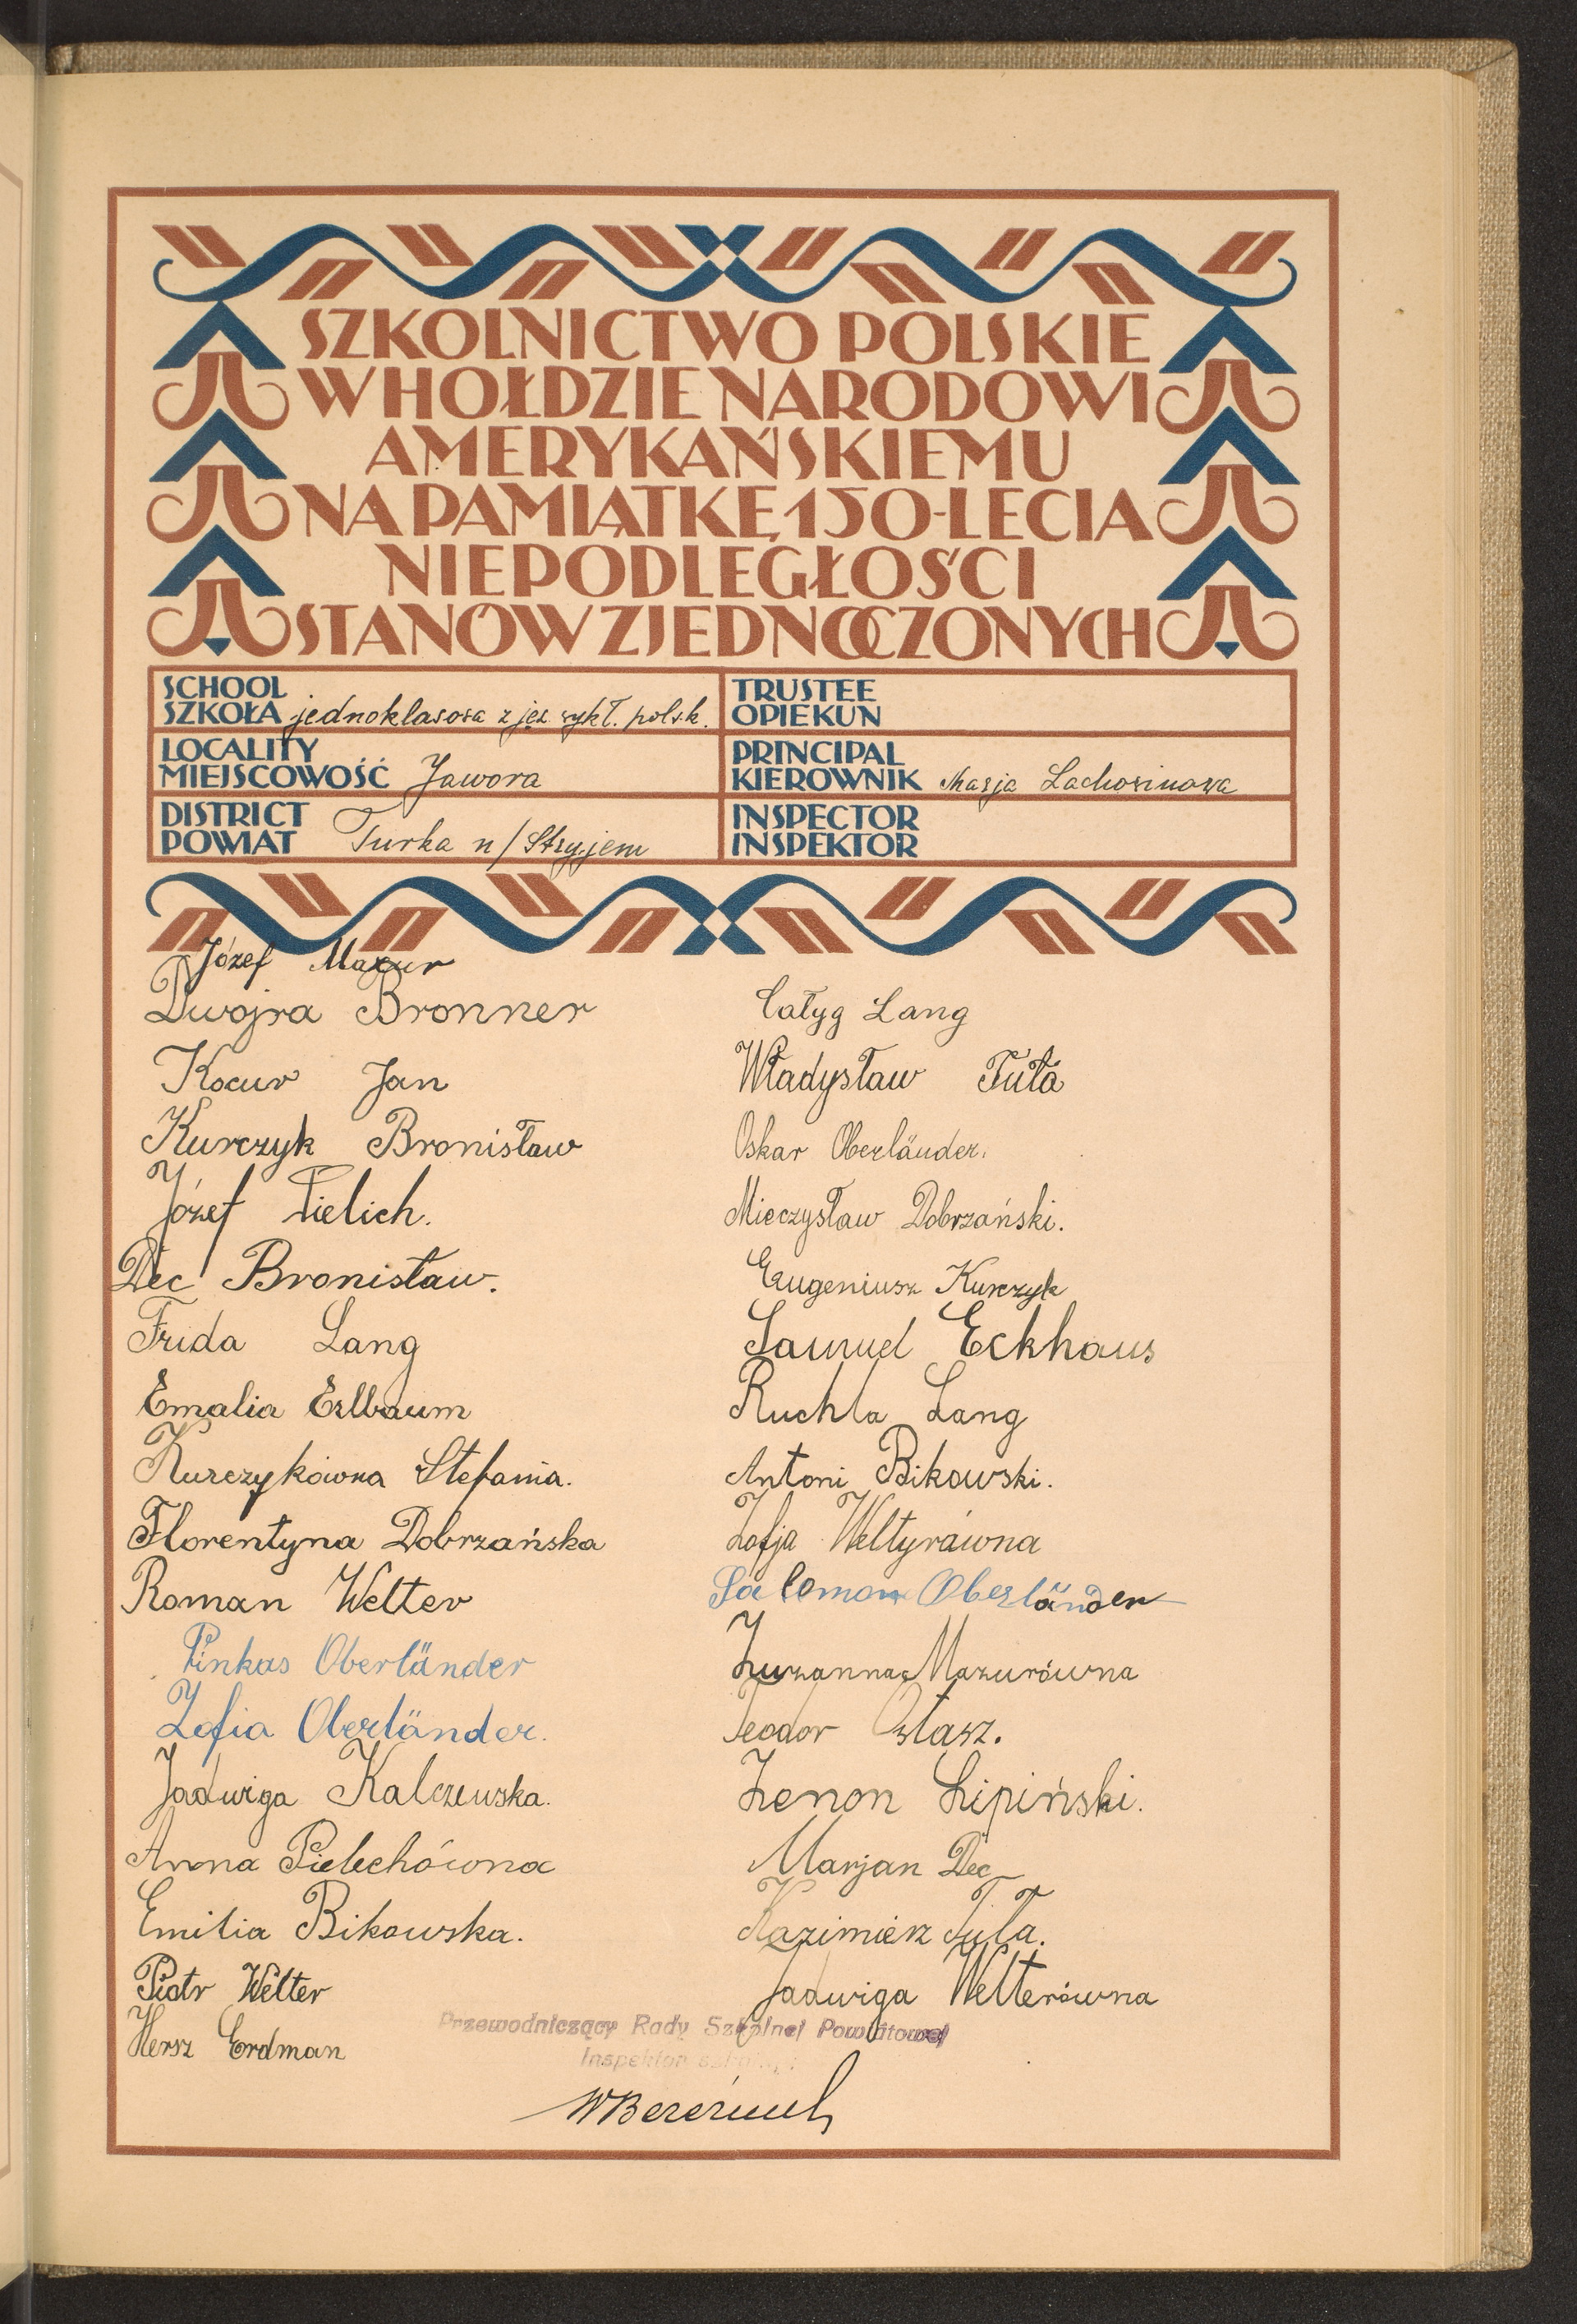 SZKOLNICTWO POLSKIE
W HOŁDZIE NARODOWI
AMERYKAŃSKIEMU
NA PAMIĄTKĘ 150-LECIA
NIEPODLEGŁOŚCI
STANÓW ZJEDNOCZONYCH
SCHOOL
SZKOŁA jednoklasowa z jęz wykł. polsk.
LOCALITY
MIEJSCOWOŚĆ Jawora
DISTRICT
POWIAT Turka n/Stryjem
TRUSTEE
OPIEKUN
PRINCIPAL
KIEROWNIK Marja Lachowinowa
INSPECTOR
INSPEKTOR
Józef Mazur
Dwojra Bronner
Kocur Jan
Kurczyk Bronisław
Józef Pielich.
Dec Bronisław.
Frida Lang
Emalia Erlbaum
Kurczykówna Stefania.
Florentyna Dobrzańska
Roman Welter
Pinkas Oberländer
Zofia Oberländer.
Jadwiga Kalczewska.
Anna Pielechówna
Emilia Bikowska.
Piotr Welter
Hersz Erdman
Całyg Lang
Władysław Tuła
Oskar Oberländer.
Mieczysław Dobrzański.
Eugeniusz Kurczyk
Samuel Eckhaus
Ruchla Lang
Antoni Bikowski.
Zofja Weltyrówna
Salomon Oberländer
Zuzanna Mazurówna
Teodor
Zenon Lipiński.
Marjan Dec
Kazimierz Tuła.
Jadwiga Welterówna
Przewodniczący Rady Szkolnej Powiatowej
Inspektor szkolny: